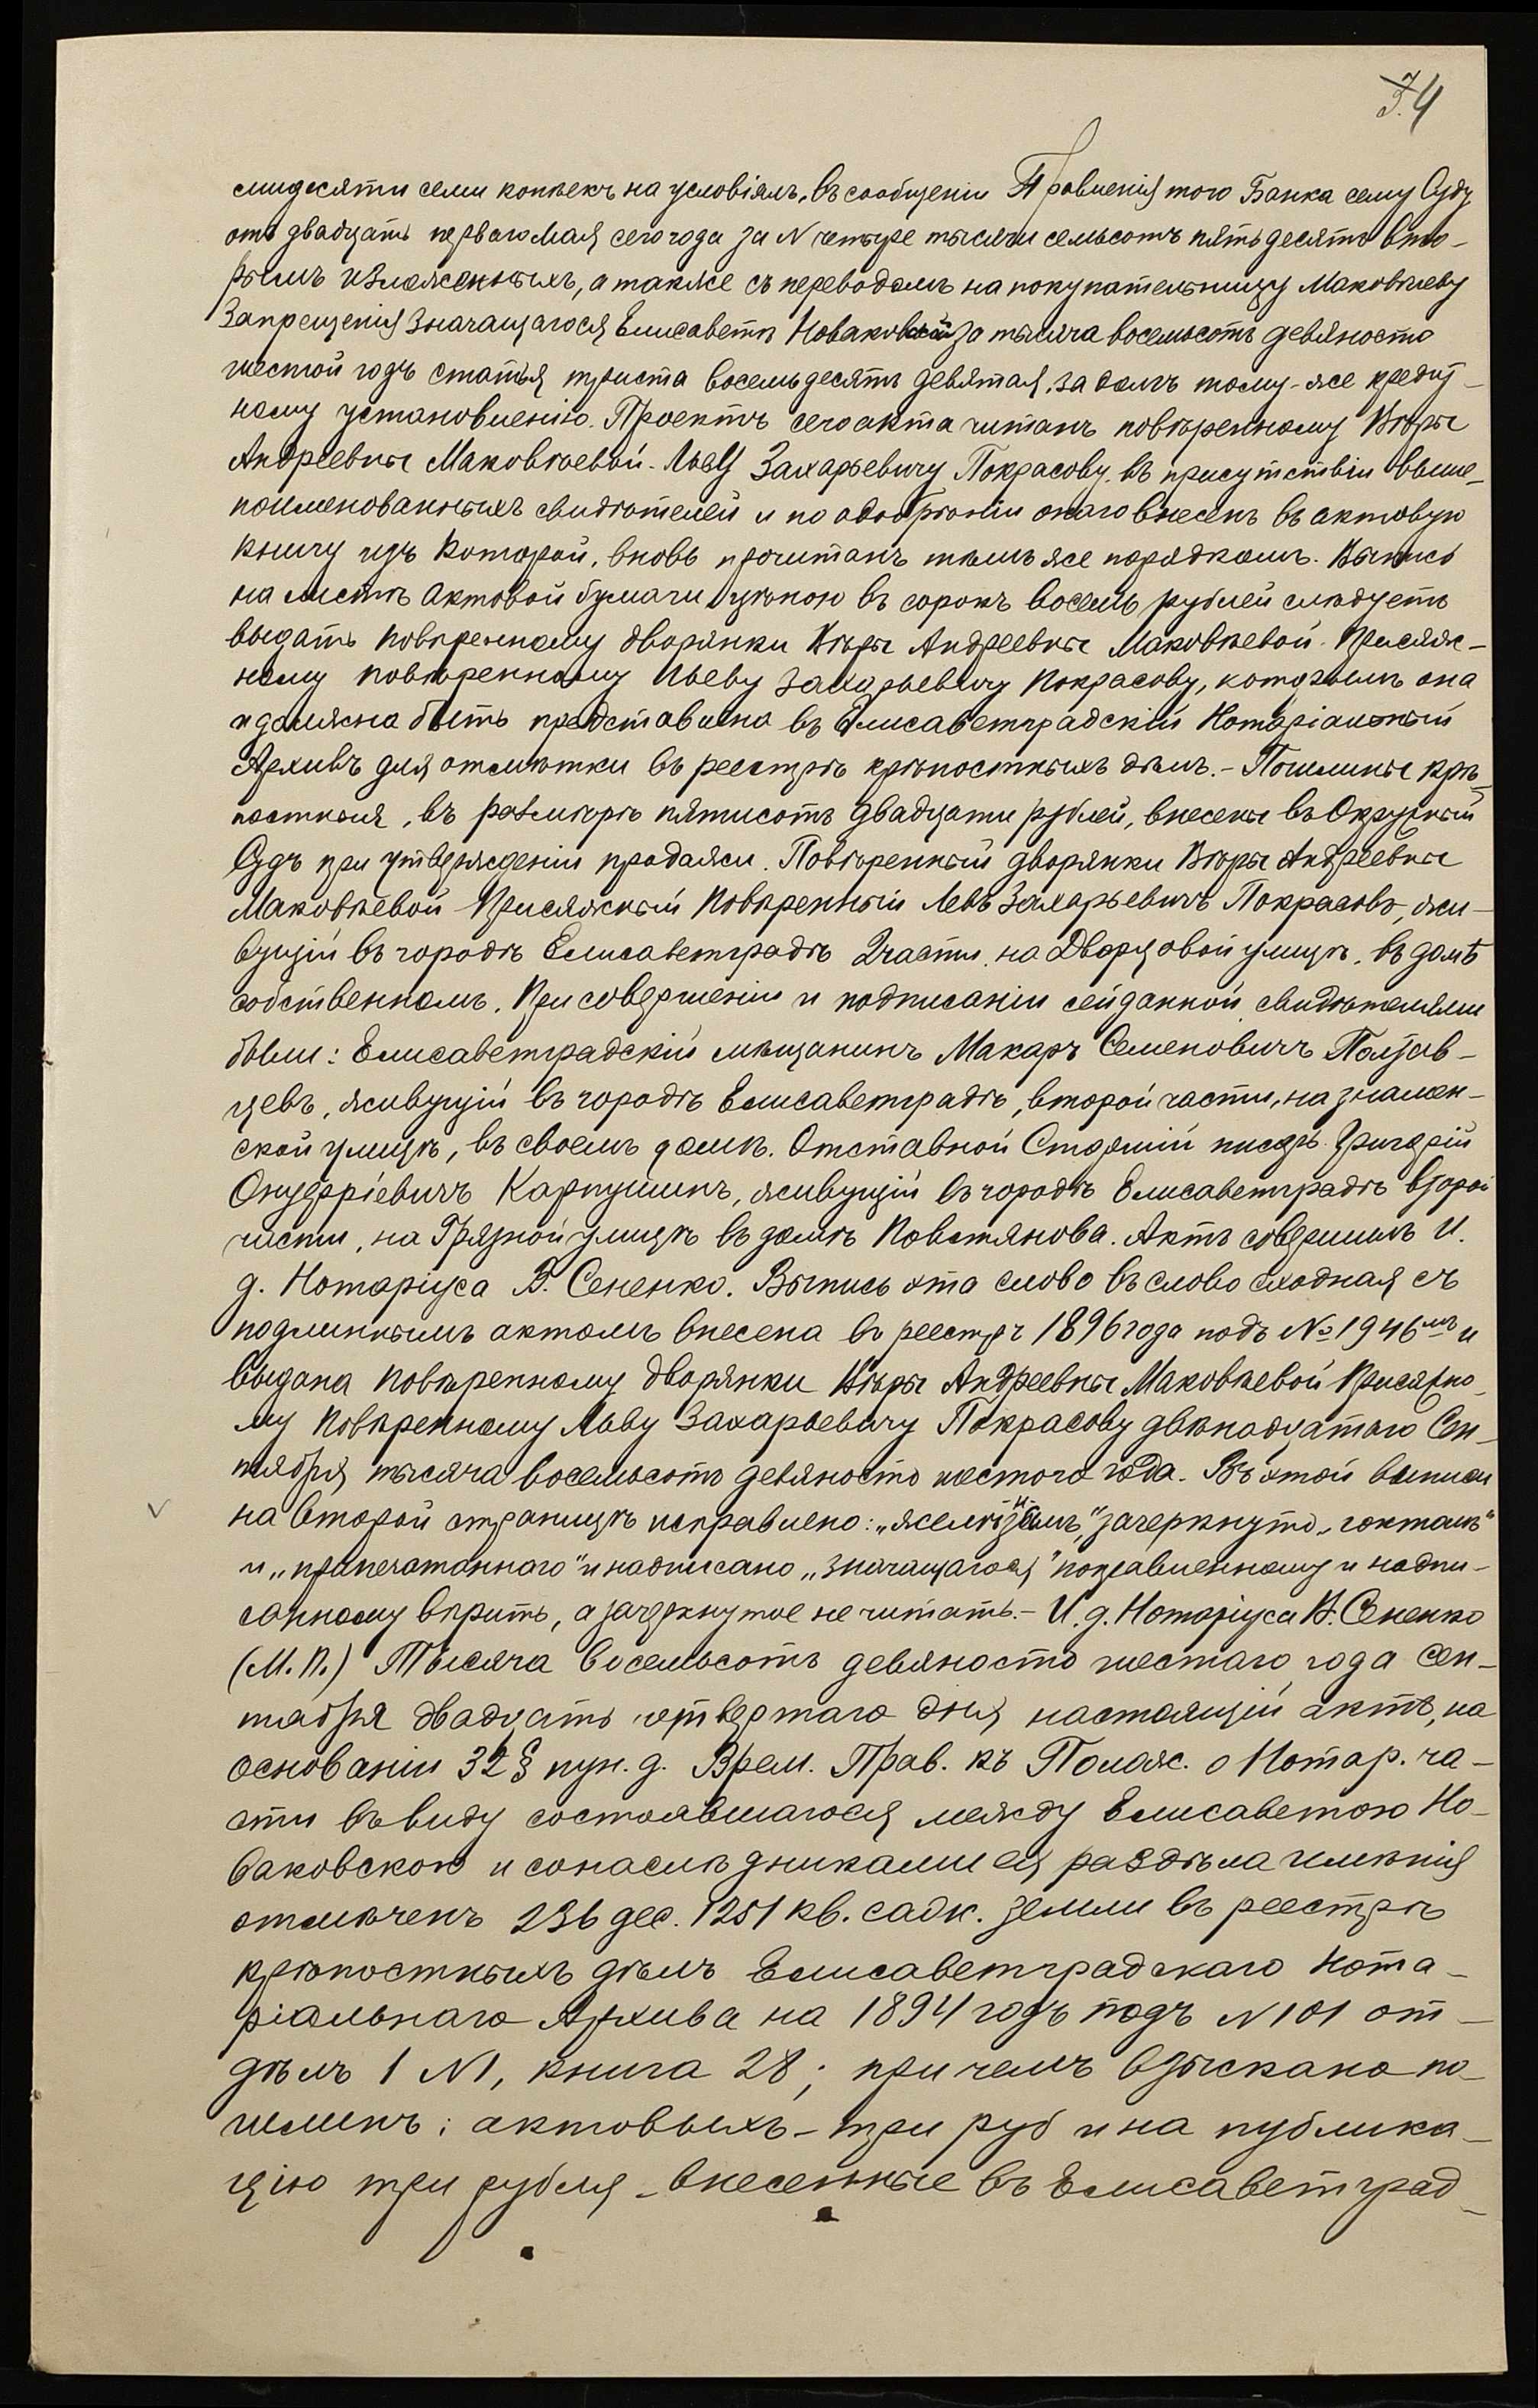 74
смидесяти семи копѣекъ на условіяхъ, въ сообщеніи Правленія того Банка сему Суду
отъ двадцать перваго Мая сего года за N четыре тысячи семьсотъ пятьдесятъ вто-
рымъ изложенныхъ, а также съ переводомъ на покупательницу Маковѣеву
Запрещенія значащагося Елисаветѣ Новаковской за тысяча восемьсотъ девяносто
шестой годъ статья триста восемьдесятъ девятая, за долгъ тому-же кредит-
ному установленію. Проектъ сего акта читанъ повѣренному Вѣры
Андреевны Маковѣевой - Льву Захарьевичу Покрасову, въ присутствіи выше-
поименованныхъ свидѣтелей и по одобреніи онаго внесенъ въ актовую
книгу изъ которой, вновь прочитанъ тѣмъ же порядкомъ. Выпись
на листѣ актовой бумаги цѣною въ сорокъ восемь рублей слѣдуетъ
выдать повѣренному дворянки Вѣры Андреевны Маковѣевой Присяж-
ному повѣренному Льву Захарьевичу Покрасову, которымъ она
и должна быть представлена въ Елисаветградскій Нотаріальный
Архивъ для отмѣтки въ реестрѣ крѣпостныхъ дѣлъ. - Пошлины крѣ-
постныя, въ размѣрѣ пятисотъ двадцати рублей, внесены въ Окружный
Судъ при утвержденіи продажи. Повѣренный дворянки Вѣры Андреевны
Маковѣевой Присяжный Повѣренный Левъ Захарьевичъ Покрасовъ, жи-
вущій въ городѣ Елисаветградѣ 2 части, на Дворцовой улицѣ, въ домѣ
собственномъ. При совершеніи и подписаніи сей данной свидѣтелями
были: Елисаветградскій мѣщанинъ Макаръ Семеновичъ Полтав-
цевъ, живущій въ городѣ Елисаветградѣ, второй части, на Знамен-
ской улицѣ, въ своемъ домѣ. Отставной Старшій писарь Григорій
Онуфріевичъ Карпушинъ, живущій въ городѣ Елисаветградѣ второй
части, на Грязной улицѣ въ домѣ Повстянова. Актъ совершилъ И.
д. Нотаріуса В. Сененко. Выпись эта слово въ слово сходная съ
подлиннымъ актомъ внесена въ реестръ 1896 года подъ № 1946мъ и
выдана повѣренному дворянки Вѣры Андреевны Маковѣевой Присяжно-
му Повѣренному Льву Захарьевичу Покрасову двѣнадцатаго Сен-
тября тысяча восемьсотъ девяносто шестого года. Въ этой выписи
на второй страницѣ исправлено: „желѣзнымъ,” зачеркнуто
и „припечатаннаго” и надписано „значащагося” поправленному и надпи-
санному вѣрить, а зачеркнутое не читать. - И. д. Нотаріуса В. Сененко
(М. П.) Тысяча восемьсотъ девяносто шестаго года Сен-
тября двадцать четвертаго дня настоящій актъ, на
основаніи 32 § пун. д. Врем. Прав. къ Полож. о Нотар. ча-
сти въ виду состоявшагося между Елисаветою Но-
ваковскою и сонаслѣдниками ея раздѣла имѣнія
отмѣченъ 236 дес. 1251 кв. саж. земли въ реестрѣ
крѣпостныхъ дѣлъ Елисаветградскаго Нота-
ріальнаго Архива на 1894 годъ подъ N 101 от-
дѣлъ 1 N1, книга 28; при чемъ взыскано по-
шлинъ: актовыхъ - три руб и на публика-
цію три рубля - внесенные въ Елисаветград-